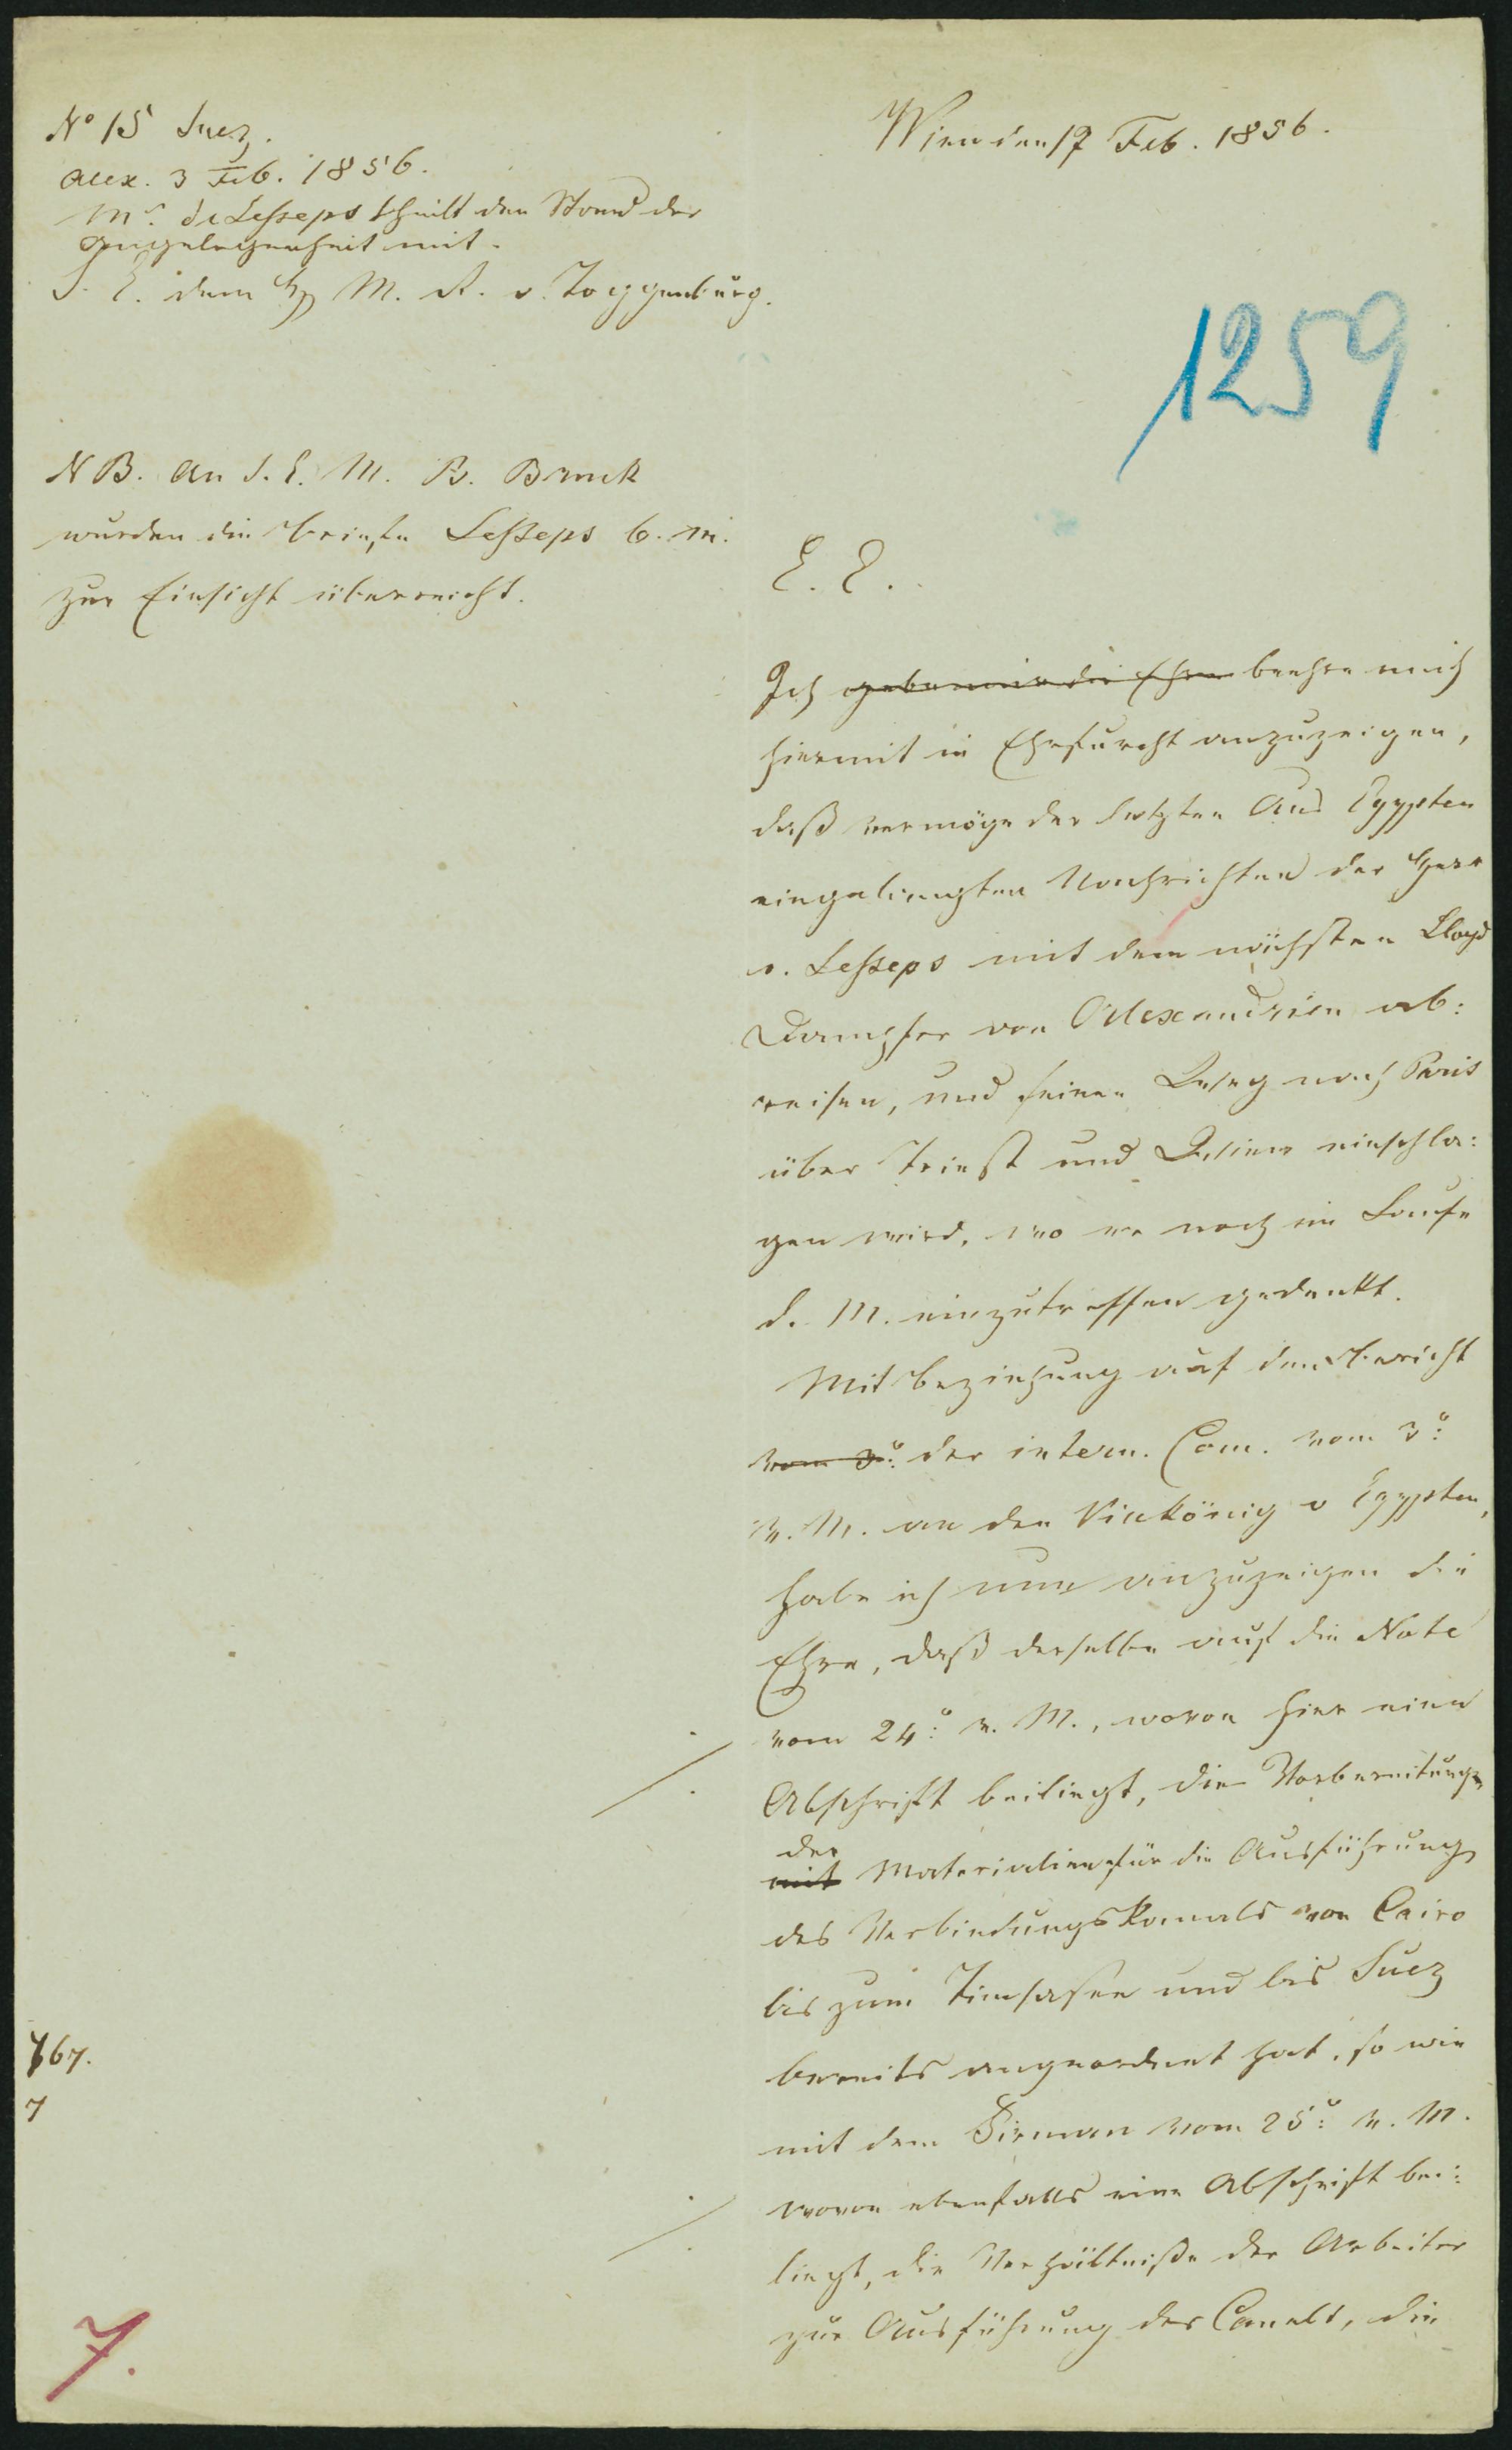 No 15 Suez.
Alex. 3 Feb. 1856.
Mr. de Lesseps theilt den Stand der
Angelegenheit mit.
S. E. dem H M. R. v. Toggenburg.
Wien den 17 Feb. 1856.
1259
NB. An S. E. M. B. Bruck
wurden die Briefe Lesseps b. m.
zur Einsicht überreicht.
E. E.
Ich gebe mir die Ehre beehre mich
hiermit in Ehrfurcht anzuzeigen,
daß vermöge der letzten aus Egypten
eingelangten Nachrichten der Herr
v. Lesseps mit dem nächsten Lloyd
Dampfer von Alexandrien ab:
reisen, und seinen Weg nach Paris
über Triest und Wien einschla:
gen wird, wo er noch im Laufe
d. M. einzutreffen gedenkt.
Mit Beziehung auf den Bericht
vom 3o: der intern. Com. vom 3o:
v. M. an den Vicekönig v Egypten,
habe ich nun anzuzeigen die
Ehre, daß derselbe auf die Note
vom 24o: v. M., wovon hier eine
Abschrift beiliegt, die Vorbereitungen
der
mit Materialien für die Ausführung
des Verbindungskanals von Cairo
bis zum Timsahsee und bis Suez
bereits angeordnet hat, so wie
mit dem Firman vom 25o: v. M.
wovon ebenfalls eine Abschrift bei:
liegt, die Verhältniße der Arbeiter
zur Ausführung des Canals, die
767.
7
7.